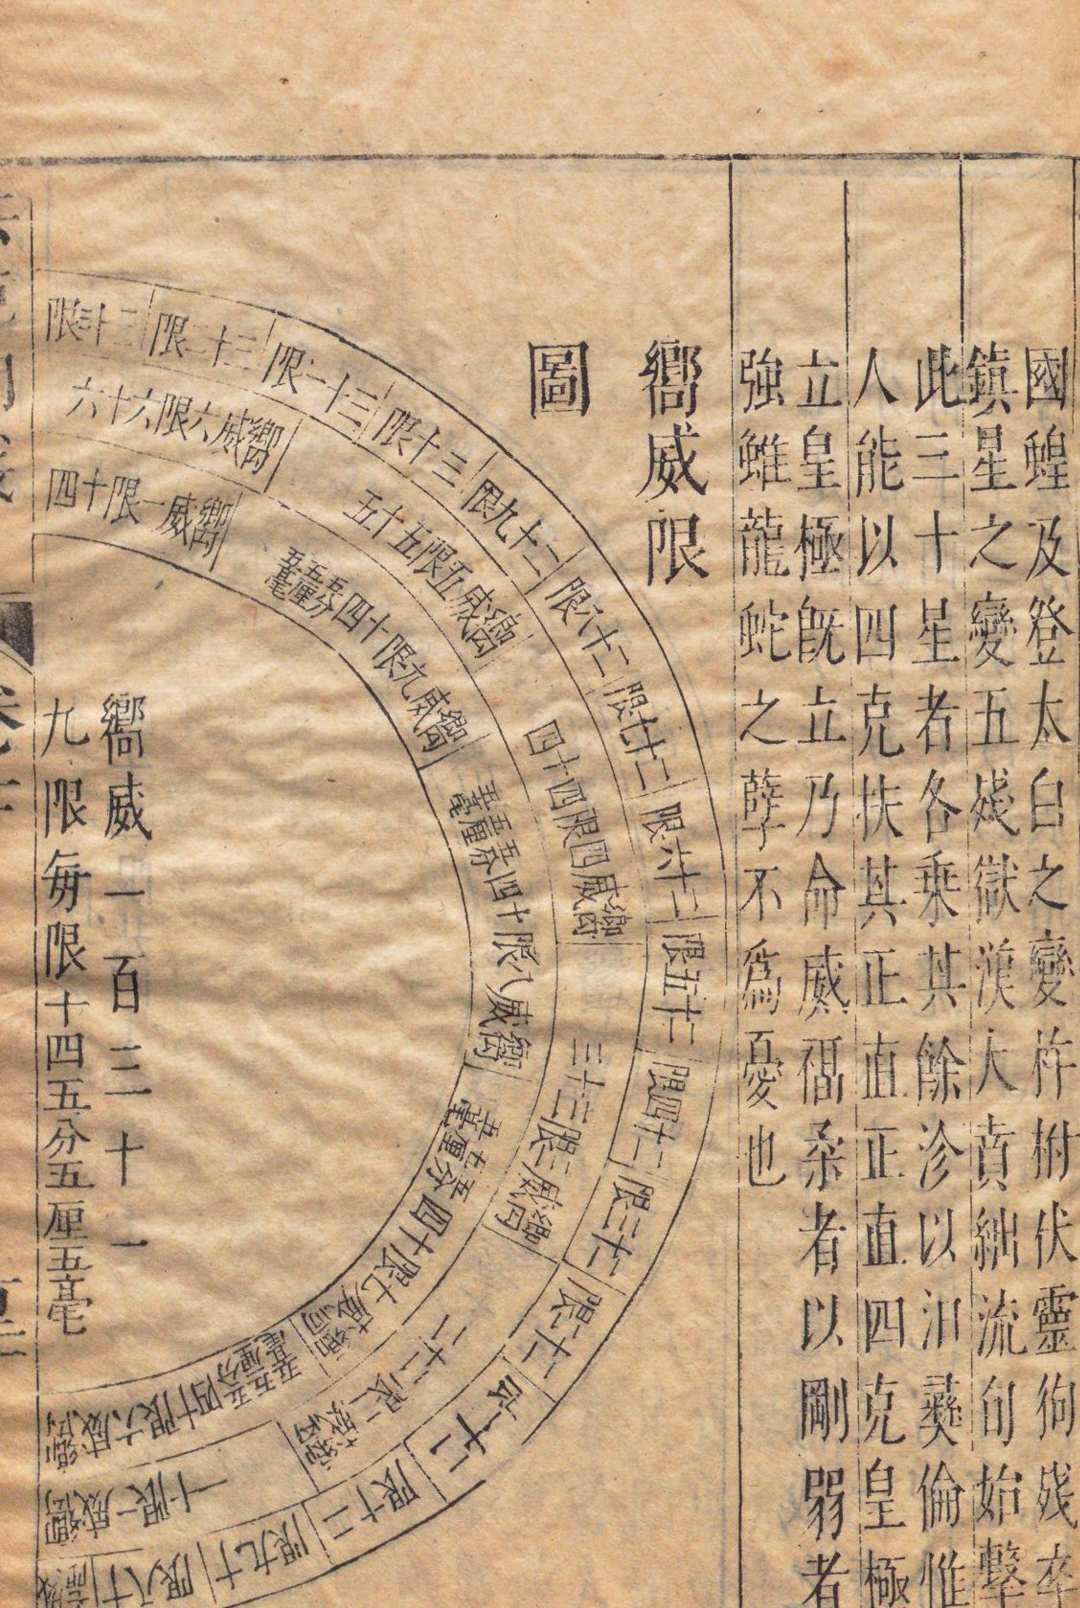 國蝗及登太白之變柞柎伏靈狗殘卒
鎮星之變五殘獄漢大賁絀流旬始擊
此三十星者各乘其餘沴以汨彛倫惟
人能以四克扶其正直正直四克皇極
立皇極既立乃命威福柔者以剛弱者
強雖龍蛇之孽不為憂也
嚮威限
圖
限三十三
限二十三
限一十三
限十三
限九十二
限八十二
限七十二
限六十二
限五十二
限四十二
限三十二
限二十二
限一十二
限十二
限九十
限八十
嚮威六限六十六
嚮威五限五十五
嚮威四限四十四
嚮威三限三十三
嚮威二限二十二
嚮威一限十一
嚮威一限十四
嚮威九限十四五分五厘五毫
嚮威八限十四五分五厘五毫
嚮威七限十四五分五厘五毫
嚮威六限十四五分五厘五毫
嚮威一百三十一
九限每限十四五分五厘五毫